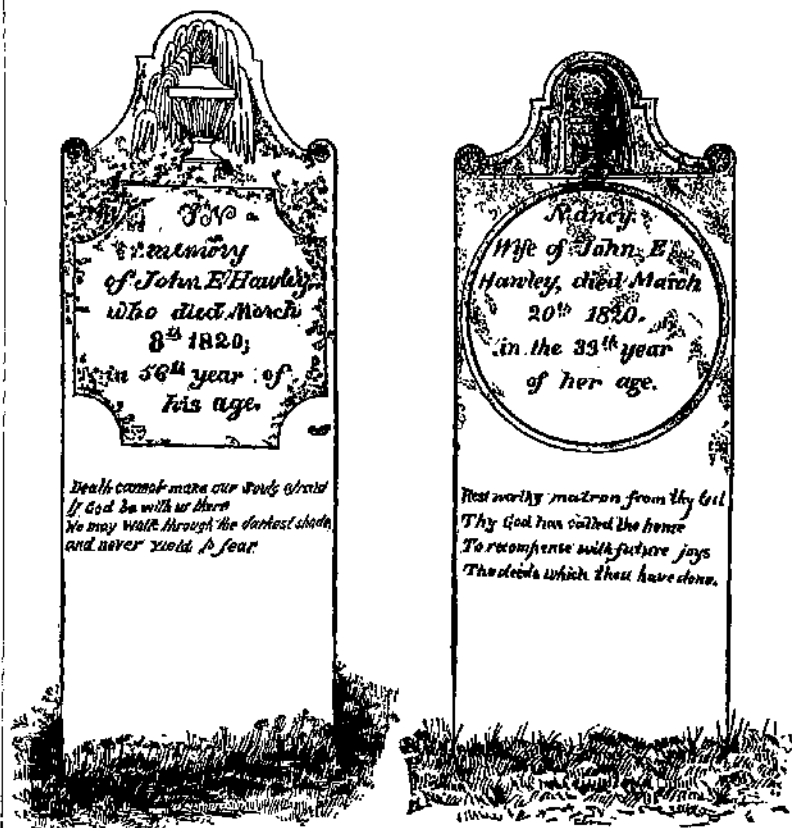 IN
memory
of John E Hawley
who died March
8th 1820;
in 56th year of
his age.
Death cannot make our Souls afraid
If God be with us there
We may walk through the darkest shade
and never yield to fear
Nancy.
Wife of John E
Hawley, died March
20th 1820.
in the 33th year
of her age.
Rest worthy matron from thy toil
Thy God has called the home
To recompense with future joys
The deeds which thou have done.